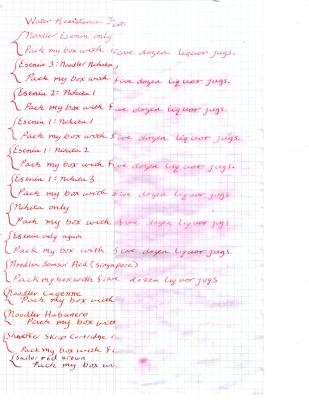 Water Resistance Test
Noodler Esenin only
Pack my box with five dozen liquor jugs.
Esenin 3: Noodler Nikita 1
Pack my box with five dozen liquor jugs.
Esenin 2: Nikita 1
Pack my box with five dozen liquor jugs.
Esenin 1: Nikita 1
Pack my box with five dozen liquor jugs.
Esenin 1: Nikita 2
Pack my box with five dozen liquor jugs.
Esenin 1: Nikita 3
Pack my box with five dozen liquor jugs.
Nikita only
Pack my box with five dozen liquor jugs
Esenin only again
Pack my box with five dozen liquor jugs.
Noodler Samsui Red (Singapore)
Pack my box with five dozen liquor jugs
Noodler Cayenne
Pack my box with
Noodler Habanero
Pack my box wit
Sheaffer Skrip Cartridge
Pack my box with fi
Sailor red brown
Pack my box wi